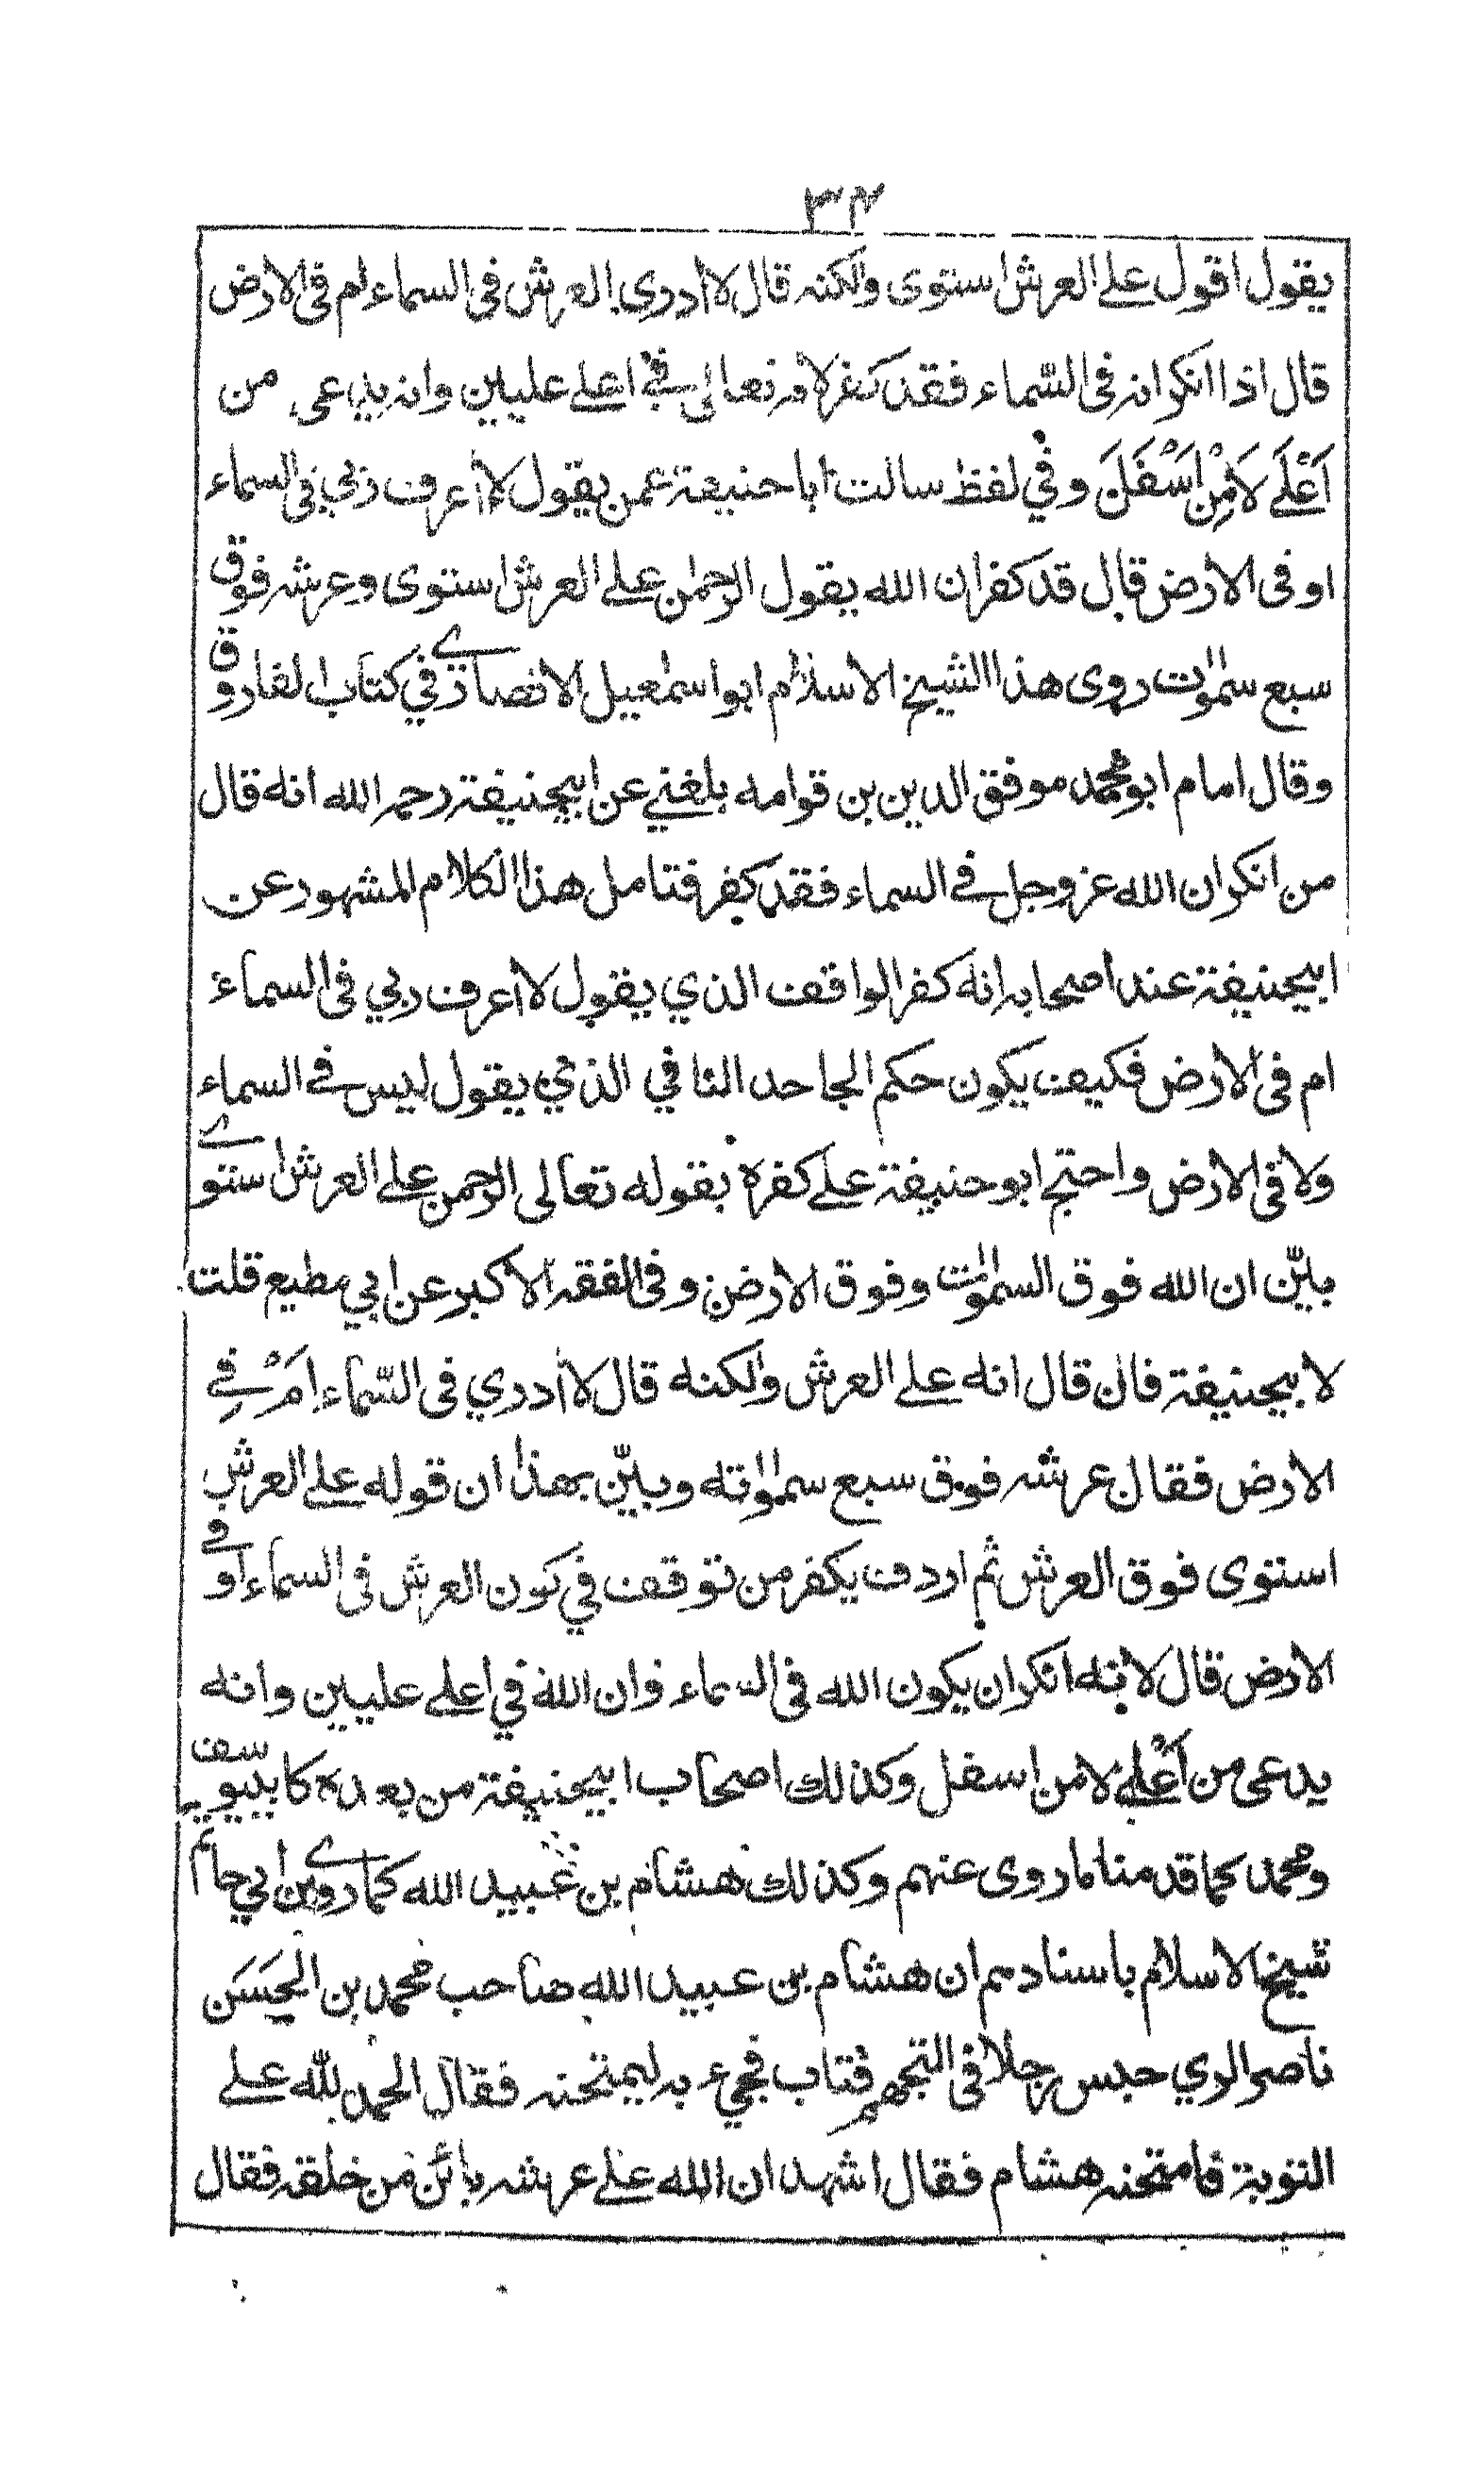 ٣٤
يقول اقول على العرش استوى ولكنه قال لا ادرى العرش فى السماء ام فى الارض
قال اذا انكر انه فى السّماء فقد كفر لانه تعالى فى اعلى عليين وانه يدعى من
اَعْلَى لاَ مِنْ اَسْفَلَ وفي لفظ سالت ابا حنيفة عمن يقول لا اعرف ربي فى السماء
او فى الارض قال قد كفر ان الله يقول الرحمٰن على العرش استوى وعرشه فوق
سبع سمٰوٰت روى هذا الشيخ الاسلام ابو اسمٰعيل الانصارى في كتاب الفاروق
وقال امام ابو محمد موفق الدين بن قوامه بلغني عن ابيحنيفة رحمه الله انه قال
من انكر ان الله عزوجل فى السماء فقد كفر فتامل هذا الكلام المشهور عن
ابيحنيفة عند اصحابه انه كفر الواقف الذي يقول لا اعرف ربي فى السماء
ام فى الارض فكيف يكون حكم الجاحد النافي الذي يقول ليس فى السماء
ولا فى الارض واحتج ابو حنيفة على كفره بقوله تعالى الرحمن على العرش استوى
بيّن ان الله فوق السمٰوٰت وفوق الارض وفى الفقه الاكبر عن ابي مطيع قلت
لابيحنيفة فان قال انه على العرش ولٰكنه قال لا ادري فى السّماء امْ فِى
الارض فقال عرشه فوق سبع سمٰوٰته وبيّن بهذا ان قوله على العرش
استوى فوق العرش ثم اردف يكفر من توقف في كون العرش فى السماء او فى
الارض قال لانه انكر ان يكون الله فى السماء وان الله في اعلى عليين وانه
يدعى من اَعْلى لا من اسفل وكذلك اصحاب ابيحنيفة من بعده كابيوسف
ومحمد كما قدمنا ما روى عنهم وكذلك هشام بن عبيد الله كما روى ابن ابي حاتم
شيخ الاسلام باسنادهم ان هشام بن عبيد الله صاحب محمد بن الحَسَن
ناصر الري حبس رجلا فى التجهم فتاب فجيء به ليمتحنه فقال الحمد لله على
التوبة فامتحنه هشام فقال اشهد ان الله على عرشه بائن من خلقه فقال